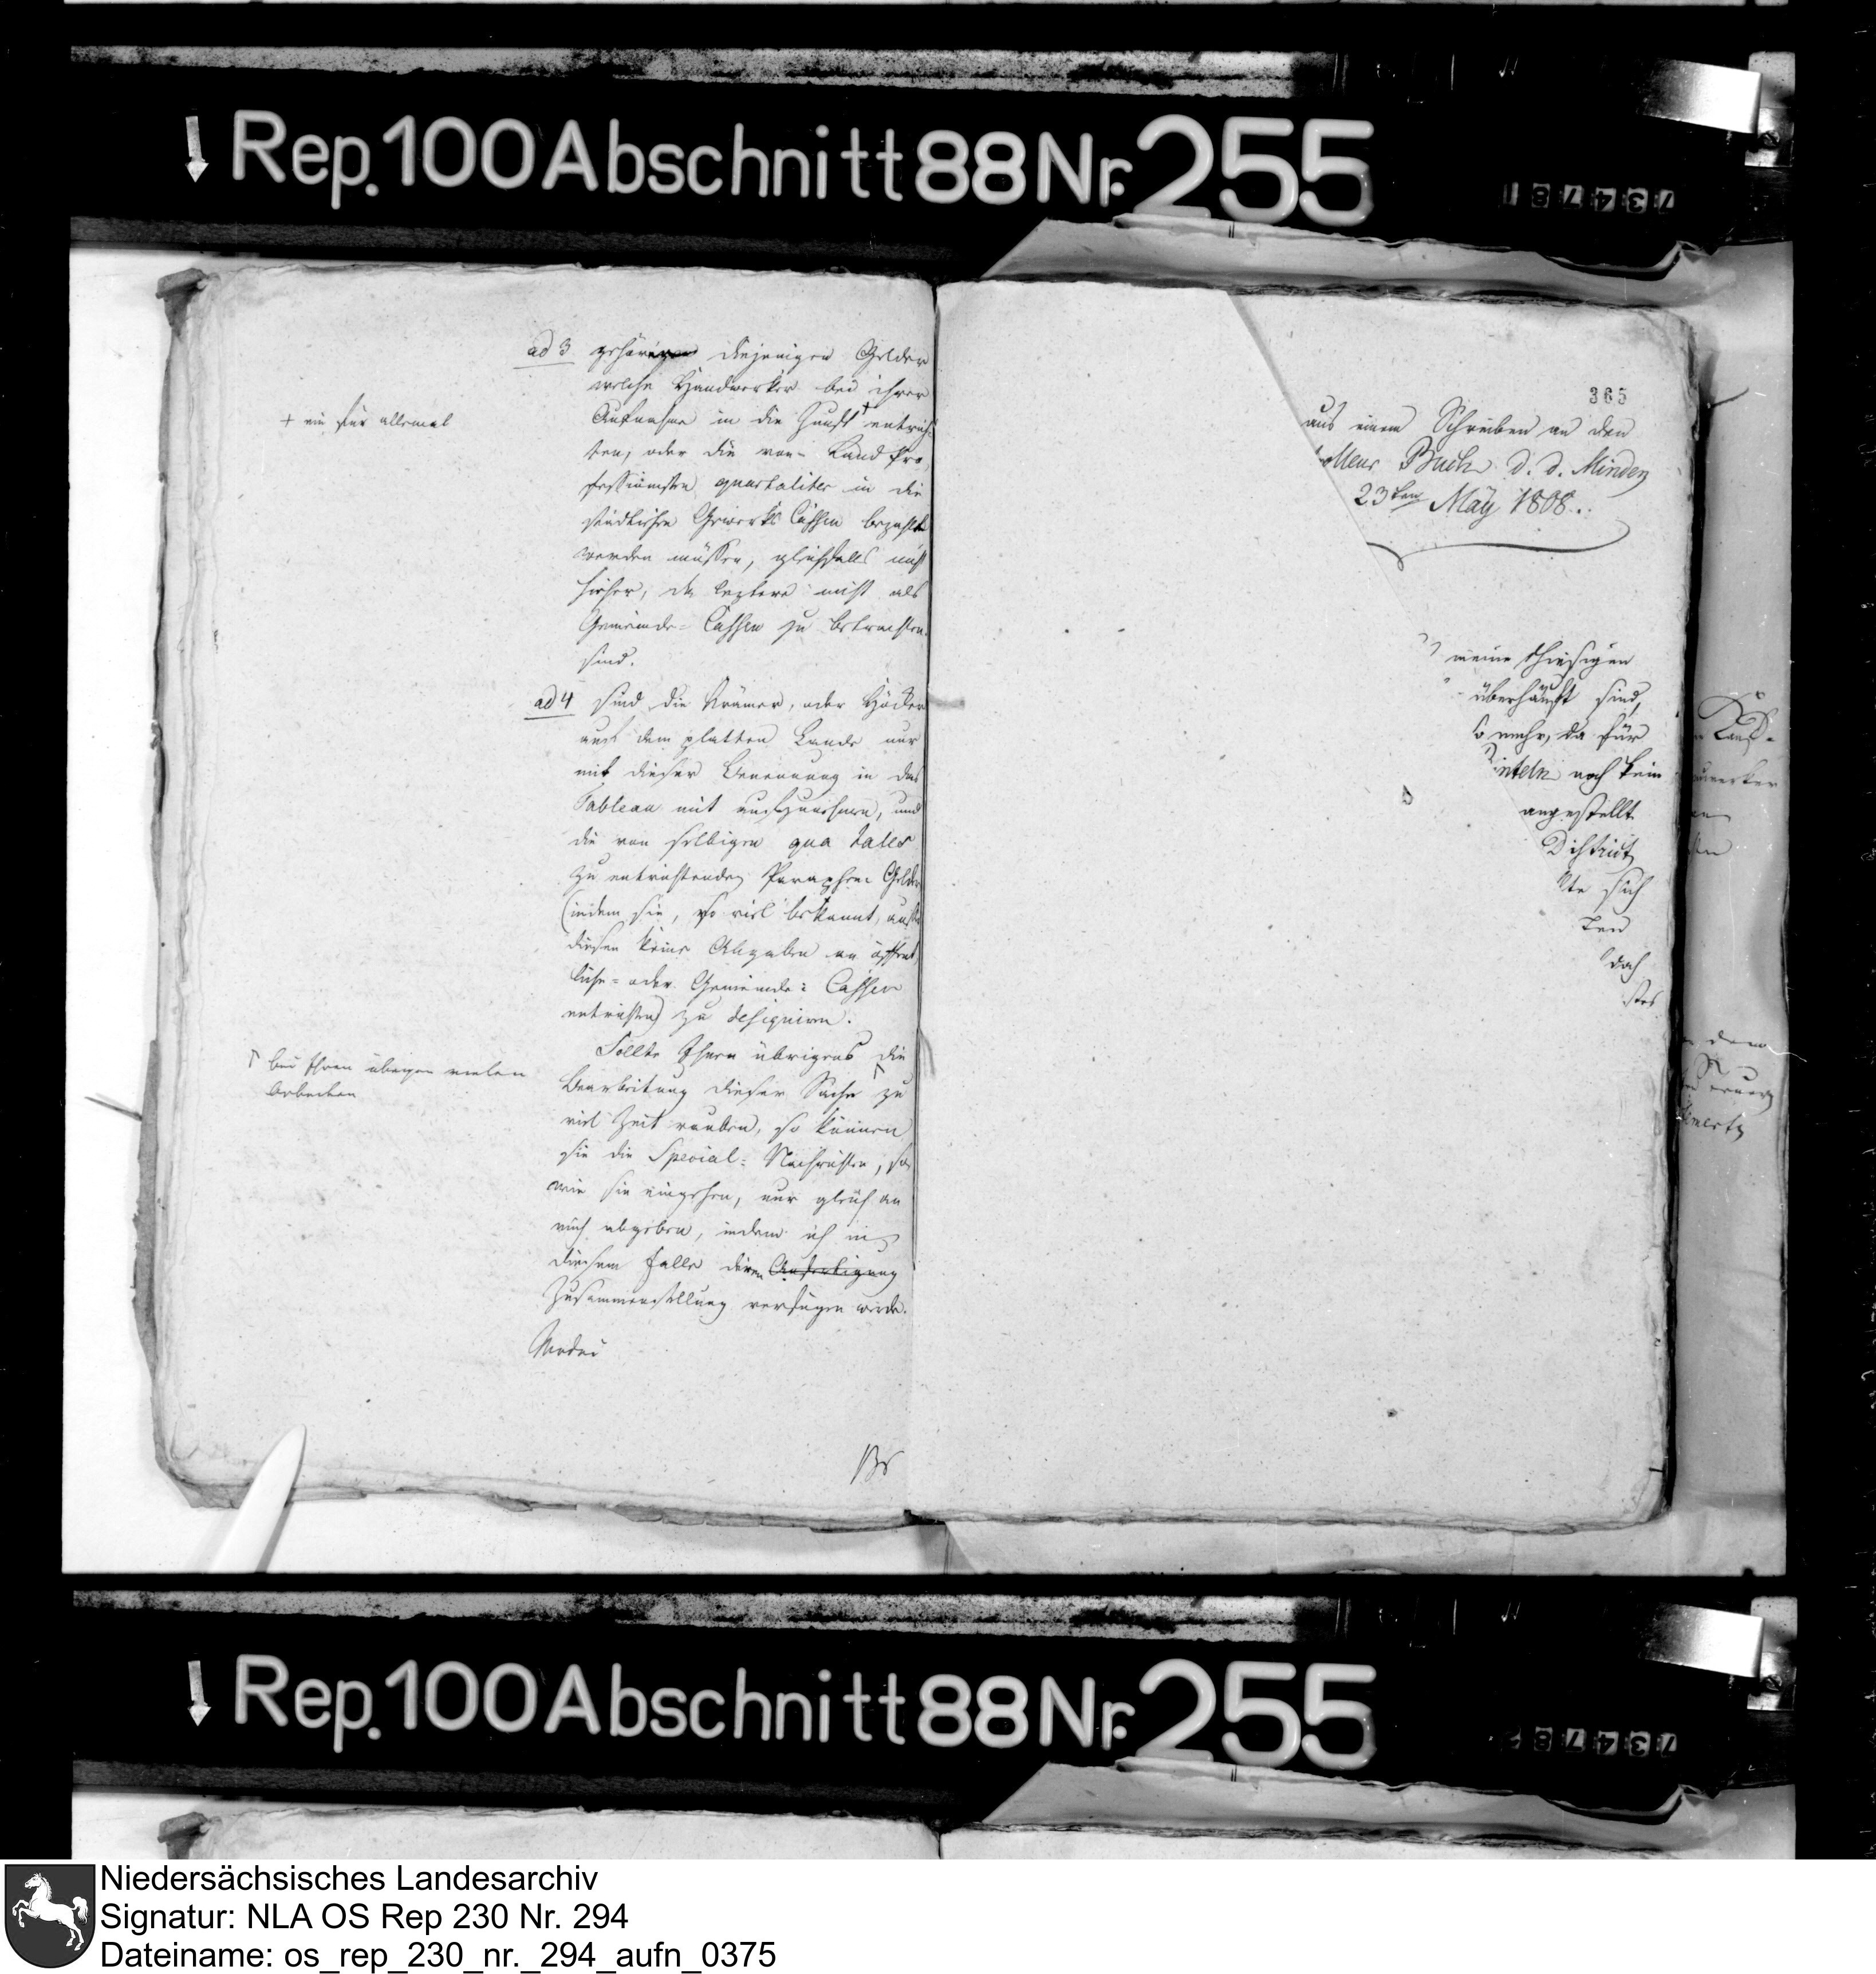 Rep. 100 Abschnitt 88 Nr. 255
734781
ad 3 gehören diejenigen Gelder
welche Handwerker bei ihrer
+ ein für allemal
Aufnahme in die Zunft + entrich-
ten, oder die von Land Pro-
fessionisten quartaliter in die
städtischen Gewerks Cassen bezahlt
werden müssen, gleichfalls nicht
hieher, da leztere nicht als
Gemeinde- Cassen zu betrachten
sind.
ad 4 sind die Krämer, oder Höcker
auf dem platten Lande nur
mit dieser Benennung in das
Tableau mit aufzunehmen, und
die von selbigen qua tales
zu entrichtenden Paraphen Gelder
(indem sie, so viel bekannt, außer
diesen keine Abgaben an öffent
liche- oder Gemeinde- Cassen
entrichten) zu designiren.
Sollte Ihnen übrigens die
bei Ihren übrigen vielen
Arbeiten
Bearbeitung dieser Sache zu
viel Zeit rauben, so können
sie die Special- Nachrichten, so
wie sie eingehen, nur gleich an
mich abgeben, indem ich in
diesem Falle deren Anfertigung
Zusammenstellung verfügen werde.
Br
365
aus einem Schreiben an den
olleur Buch d. d. Minden
23ten May 1808.
meine hiesigen
überhäuft sind,
so mehr, da für
Rinteln noch kein
angestellt
District
lte sich
ten
doch
Rep. 100 Abschnitt 88 Nr. 255
73478
Niedersächsisches Landesarchiv
Signatur: NLA OS Rep 230 Nr. 294
Dateiname: os_rep_230_nr._294_aufn_0375